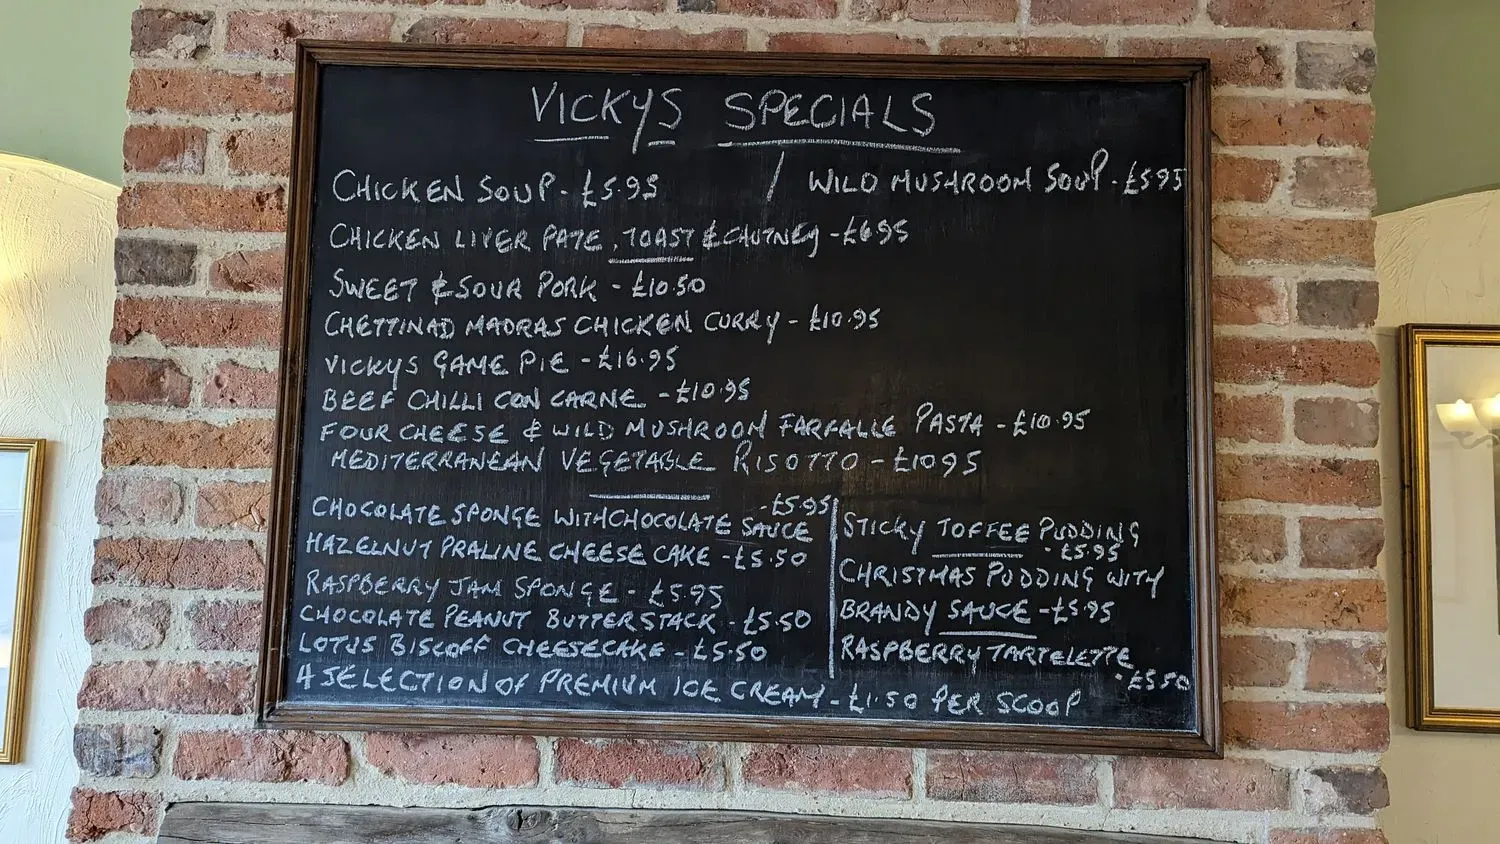 VICKYS SPECIALS
CHICKEN SOUP - £5.95 / WILD MUSHROOM SOUP - £5.95
CHICKEN LIVER PATE, TOAST & CHUTNEY - £6.95
SWEET & SOUR PORK - £10.50
CHETTINAD MADRAS CHICKEN CURRY - £10.95
VICKYS GAME PIE - £16.95
BEEF CHILLI CON CARNE - £10.95
FOUR CHEESE & WILD MUSHROOM FARFALLE PASTA - £10.95
MEDITERRANEAN VEGETABLE RISOTTO - £10.95
CHOCOLATE SPONGE WITH CHOCOLATE SAUCE - £5.95
HAZELNUT PRALINE CHEESE CAKE - £5.50
RASPBERRY JAM SPONGE - £5.95
CHOCOLATE PEANUT BUTTER STACK - £5.50
LOTUS BISCOFF CHEESECAKE - £5.50
STICKY TOFFEE PUDDING
- £5.95
CHRISTMAS PUDDING WITH
BRANDY SAUCE - £5.95
RASPBERRY TARTELETTE
- £5.50
A SELECTION OF PREMIUM ICE CREAM - £1.50 PER SCOOP